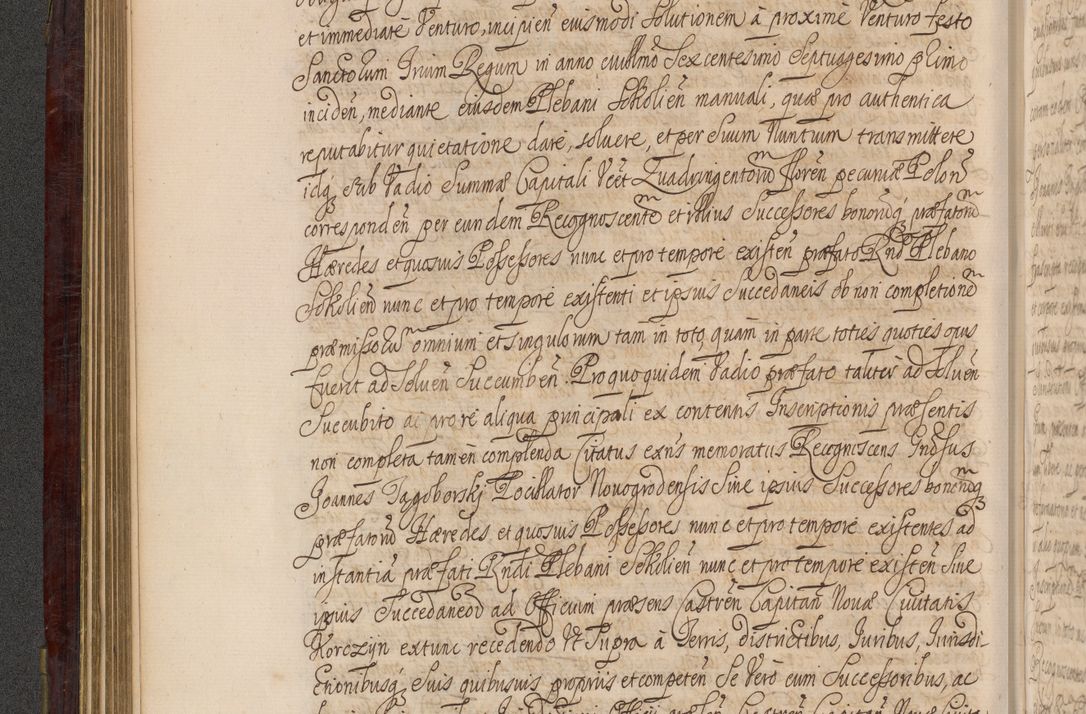 et immediate Venturo, incipien̄ eiusmodi Solutionem à proxime Venturo festo
Sanctorum Trium Regum in anno currenti Sexcentesimo Septuagesimo primo
inciden̄, mediante eiusdem Plebani Sokolien̄ manuali, quæ pro authentica
reputabitur quietatione dare, solvere, et per Suum Nuntium transmittere
idq̨ Sub Vadio Summæ Capitali Vcēt Quadringentorū florēn pecuniæ Polon̄
correspondēn per eundem Recognoscentē et illius Successores bonorūq̨ præfatorū
Hæredes et quosvis Possessores nunc et pro tempore existēn præfato Rnd̄ Plebano
Sokolien̄ nunc et pro tempore existenti et ipsius Succedaneis ob non completionē
præmissorū omnium et singulorum tam in toto quam in parte toties quoties opus
fuerit ad Solvēn Succumbēn. Pro quo quidem Vadio præfato taliter ad Solvēn
Succubito ac pro re aliqua principali ex contentis Inscriptionis præsentis
non completa tamen complenda Citatus exn̄s memoratus Recogniscens Indūs
Joannes Jagoborskj Pocillator Novogrodensis Sive ipsius Successores bonorūq̨
præfatorū Hæredes et quosvis Possessores nunc et pro tempore existentes ad
instantiā præfati Rndi Plebani Sokolien̄ nunc et pro tempore existēn Sive
ipsius Succedaneorū ad Officium præsens Castrēn Capitan̄ Novæ Civitatis
Korczyn extunc recedendo Vt Supra à Terris, districtibus, Iuribus, Iurisdi-
ctionibusq̨ Suis quibusvis proprijs et competēn Se Vero cum Successoribus, ac